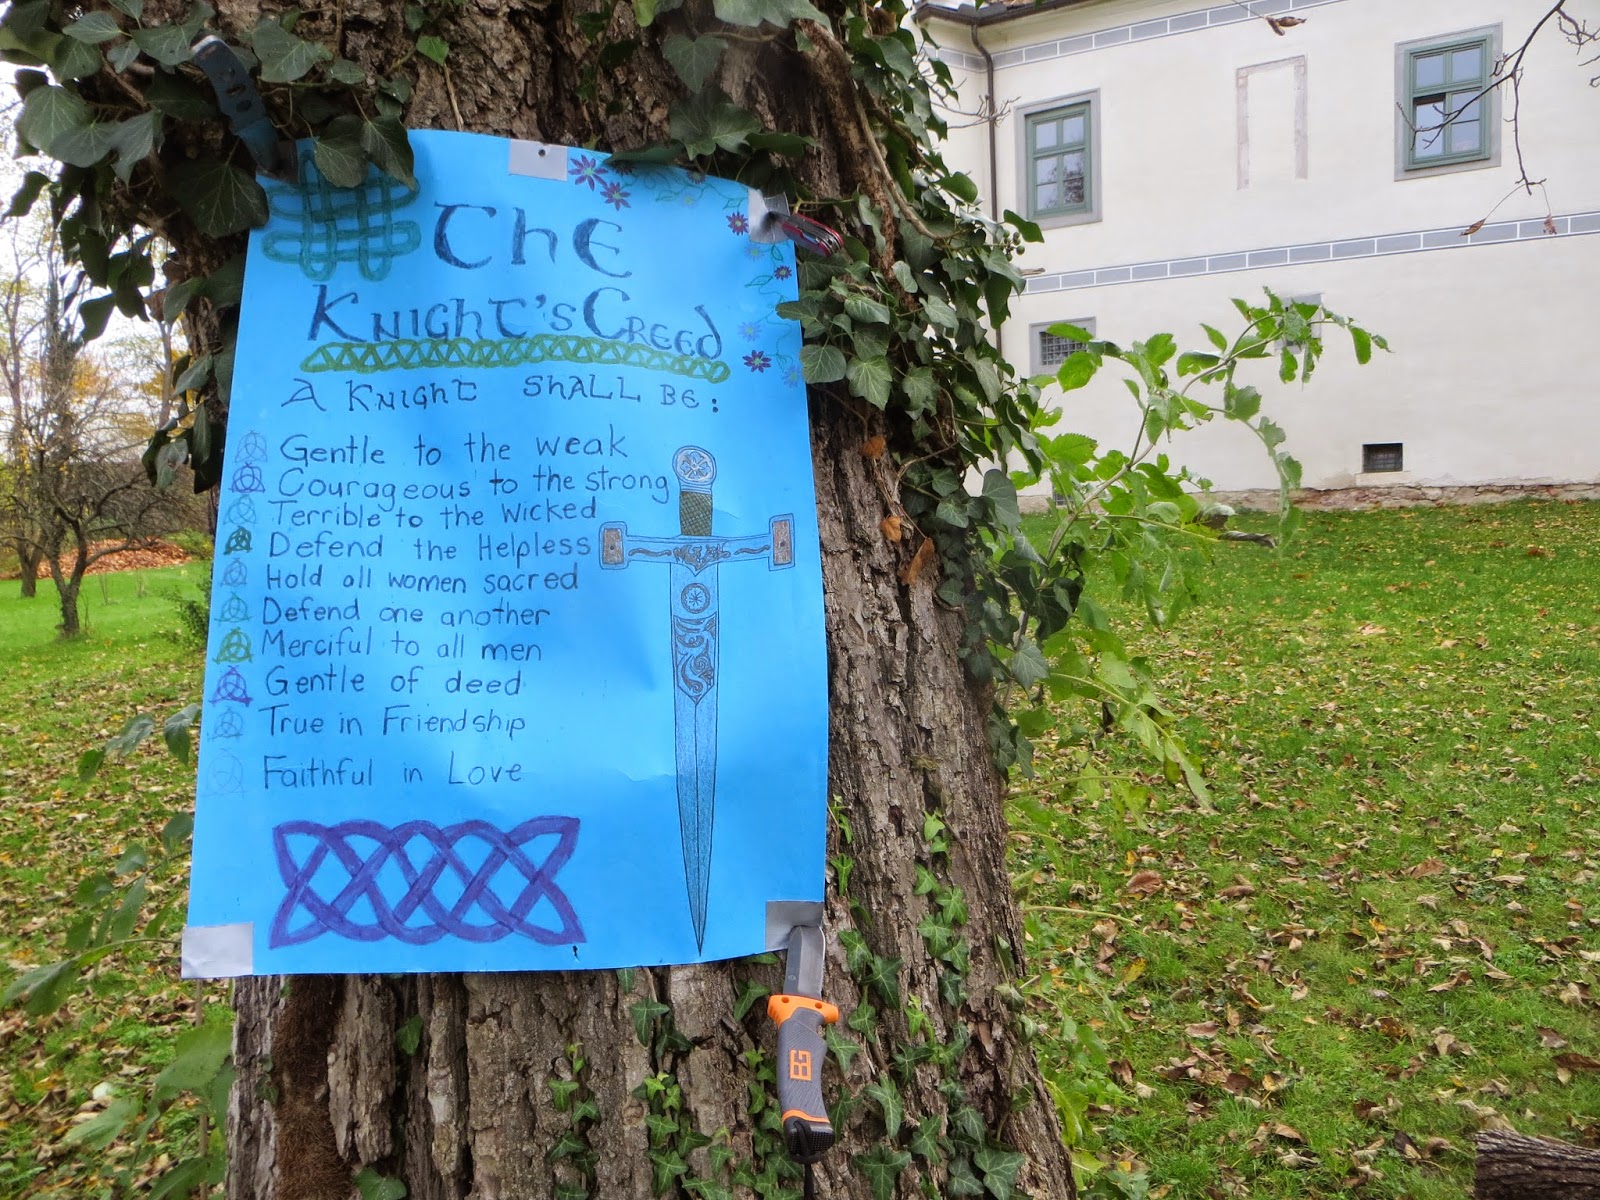 The
Knight's Creed
A Knight shall be:
Gentle to the weak
Courageous to the strong
Terrible to the wicked
Defend the Helpless
Hold all women sacred
Defend one another
Merciful to all men
Gentle of deed
True in Friendship
Faithful in Love
BG